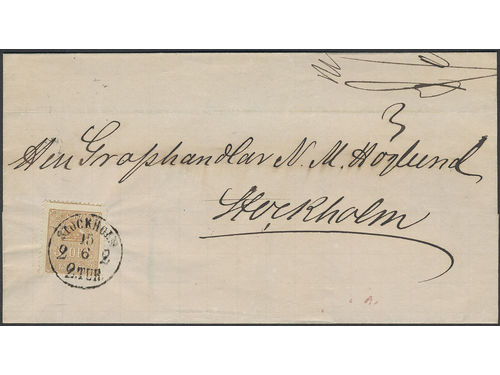 3
Herr Grosshandlar N. M. Höglund
Stockholm
STOCKHOLM
15
2 6 2
2.TUR.